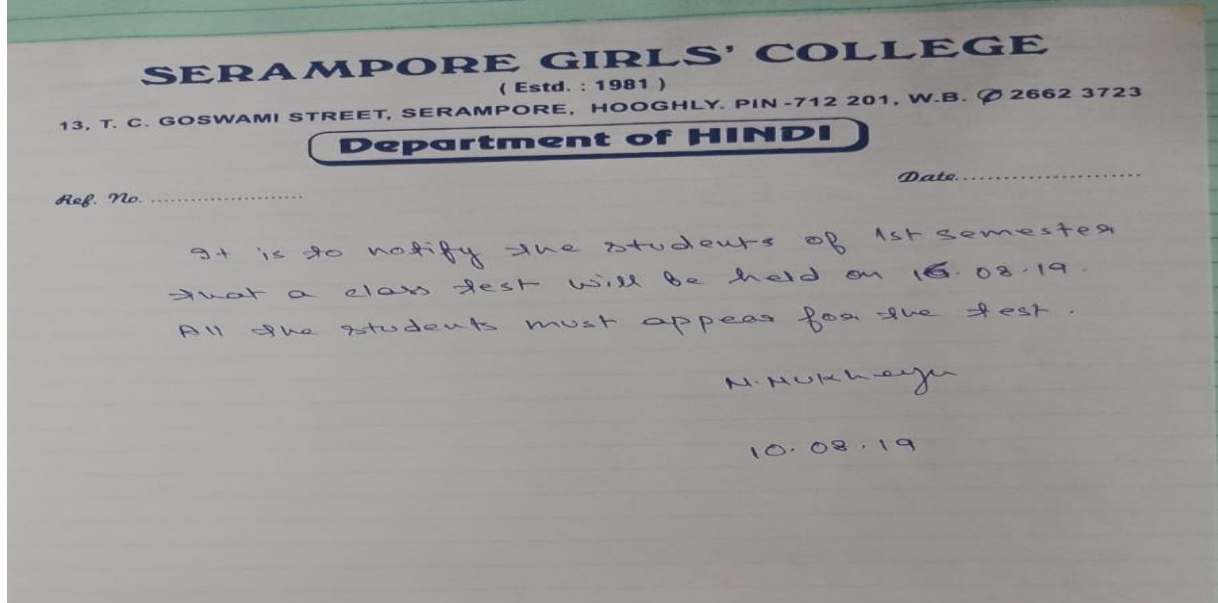 SERAMPORE GIRLS' COLLEGE
( Estd. : 1981 )
13, T. C. GOSWAMI STREET, SERAMPORE, HOOGHLY. PIN -712 201, W.B. ✆ 2662 3723
Department of HINDI
Date........................
Ref. No. ........................
It is to notify the students of 1st semester
that a class test will be held on 16.08.19.
All the students must appear for the test.
N.
10.08.19